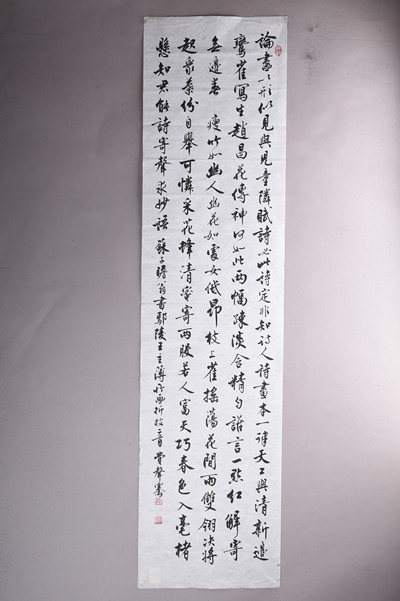 論畫以形似見與兒童隣賦詩必此詩定非知詩人詩畫本一律天工與清新邊
鸞雀寫生趙昌花傳神何如此兩幅疎淡含精勻誰言一點紅解寄
無邊春 瘦竹如幽人幽花如處女低昂枝上雀搖蕩花間雨雙翎決將
起衆葉紛自舉可憐采花蜂清蜜寄兩股若人富天巧春色入毫楮
懸知君能詩寄聲求妙語 蘇子瞻翁書鄢陵王主簿所畫折枝二首